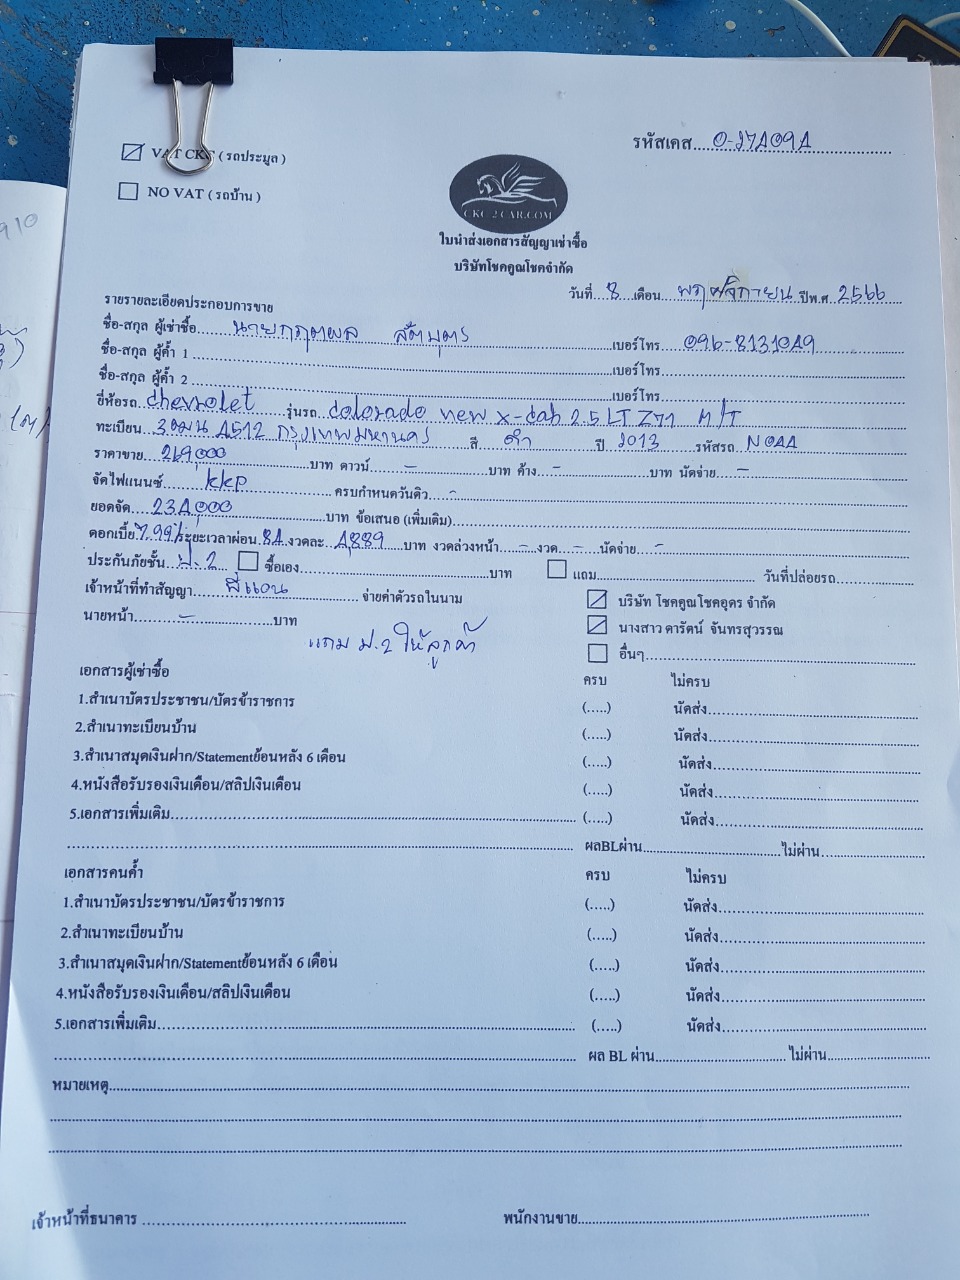 รหัสเคส....0-27409A
☑ VAT CKC (รถประมูล)
☐ NO VAT (รถบ้าน)
CKC2CAR.COM
ใบนำส่งเอกสารสัญญาเช่าซื้อ
บริษัทโชคคูณโชคจำกัด
วันที่...8...เดือน...พฤศจิกายน...ปีพ.ศ...2566
รายรายละเอียดประกอบการขาย
ชื่อ-สกุล ผู้เช่าซื้อ...นายกฤตพล ...เบอร์โทร...096-8131049
ชื่อ-สกุล ผู้ค้ำ 1...เบอร์โทร...
ชื่อ-สกุล ผู้ค้ำ 2...เบอร์โทร...
ยี่ห้อรถ...chevrolet...รุ่นรถ...colorado new x-cab 2.5 LT Z71 M/T
ทะเบียน...3ฒน 4512 กรุงเทพมหานคร สี ดำ ปี 2013 รหัสรถ NO44
ราคาขาย...269,000...บาท ดาวน์...-...บาท ค้าง...-...บาท นัดจ่าย...-
จัดไฟแนนซ์...kkp...ครบกำหนดวันดิว...-
ยอดจัด...234,000...บาท ข้อเสนอ (เพิ่มเติม)...
ดอกเบี้ย.7.99%ระยะเวลาผ่อน.84.งวดละ...4,889...บาท งวดล่วงหน้า...-...งวด...-...นัดจ่าย...-
ประกันภัยชั้น...ป.2...☐ ซื้อเอง...บาท ☐ แถม... วันที่ปล่อยรถ...
เจ้าหน้าที่ทำสัญญา...พี่แอน...จ่ายค่าตัวรถในนาม ☑ บริษัท โชคคูณโชคอุดร จำกัด
นายหน้า...-...บาท ☑ นางสาว ดารัตน์ จันทรสุวรรณ
แถม ป.2 ให้ลูกค้า ☐ อื่นๆ...
เอกสารผู้เช่าซื้อ ครบ ไม่ครบ
1.สำเนาบัตรประชาชน/บัตรข้าราชการ (.....) นัดส่ง...
2.สำเนาทะเบียนบ้าน (.....) นัดส่ง...
3.สำเนาสมุดเงินฝาก/Statementย้อนหลัง 6 เดือน (.....) นัดส่ง...
4.หนังสือรับรองเงินเดือน/สลิปเงินเดือน (.....) นัดส่ง...
5.เอกสารเพิ่มเติม... (.....) นัดส่ง...
... ผลBLผ่าน...ไม่ผ่าน...
เอกสารคนค้ำ ครบ ไม่ครบ
1.สำเนาบัตรประชาชน/บัตรข้าราชการ (.....) นัดส่ง...
2.สำเนาทะเบียนบ้าน (.....) นัดส่ง...
3.สำเนาสมุดเงินฝาก/Statementย้อนหลัง 6 เดือน (.....) นัดส่ง...
4.หนังสือรับรองเงินเดือน/สลิปเงินเดือน (.....) นัดส่ง...
5.เอกสารเพิ่มเติม... (.....) นัดส่ง...
... ผล BL ผ่าน...ไม่ผ่าน...
หมายเหตุ...
เจ้าหน้าที่ธนาคาร ... พนักงานขาย...